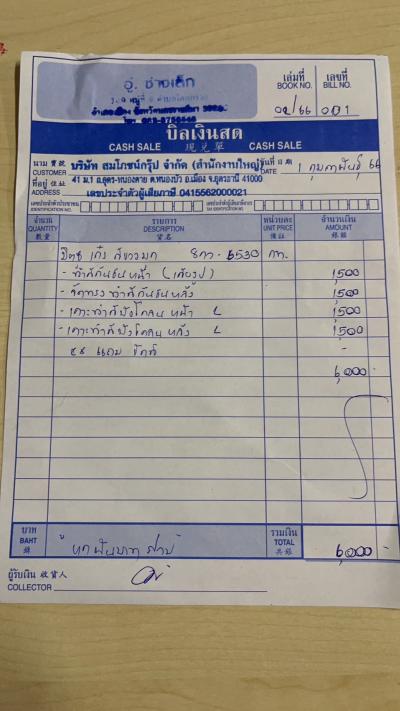 อู่ ช่างเล็ก
เล่มที่ BOOK NO. 02/66
เลขที่ BILL NO. 001
บิลเงินสด
CASH SALE 現兑單 CASH SALE
นาม 貴號 CUSTOMER บริษัท สมโภชน์กรุ๊ป จำกัด (สำนักงานใหญ่)
วันที่ 日期 DATE 1 กุมภาพันธุ์ 66
ที่อยู่ 住址 ADDRESS 41 ม.1 ถ.อุดร-หนองคาย ต.หนองบัว อ.เมือง จ.อุดรธานี 41000
เลขประจำตัวผู้เสียภาษี 0415562000021
เลขประจำตัวประชาชน IDENTIFICATION NO. เลขประจำตัวผู้เสียภาษีอากร TAX IDENTIFICATION NO.
จำนวน QUANTITY 數量 รายการ DESCRIPTION 貨名 หน่วยละ UNIT PRICE 價註 จำนวนเงิน AMOUNT 銀額
เก๋ง สีขาวมุก 8กว-6530 กท.
- ทำสีกันชนหน้า 1,500
- ทำสีกันชนหลัง 1,500
- เคาะทำสีบังโคลน หน้า L 1,500
- เคาะทำสีบังโคลน หลัง L 1,500
แถม -
6,000 -
บาท BAHT 銖 หกพันบาทถ้วน
รวมเงิน TOTAL 共銀 6,000 -
ผู้รับเงิน 收貨人 COLLECTOR